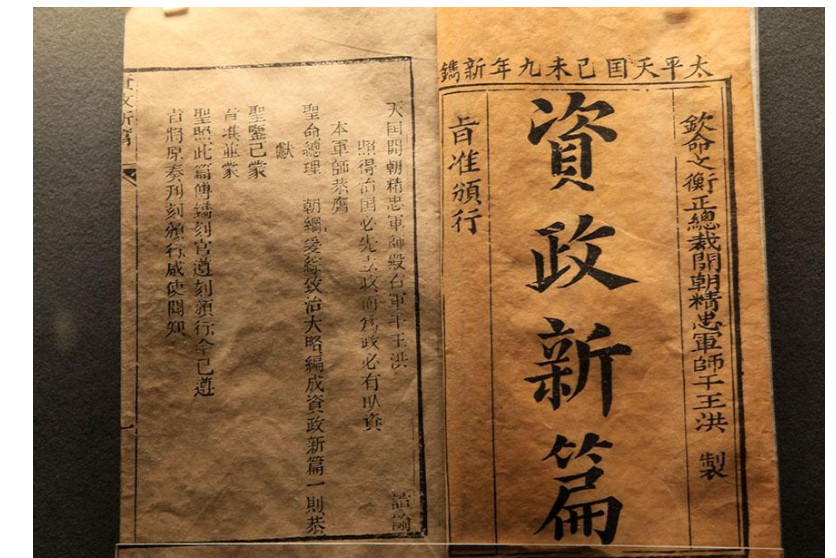 太平天囯己未九年新鐫
欽命文衡正總裁開朝精忠軍師干王洪 製
資政新篇
旨准頒行
天囯開朝精忠軍師殿右軍干王洪 諠諭
照得治囯必先立政而爲政必有取資
本軍師恭膺
聖命總理 朝綱爰綜致治大略編成資政新篇一則恭
獻
聖鑒已蒙
旨准並蒙
聖照此篇傳鐫刻官遵刻頒行今已遵
旨將原奏刋刻頒行咸使聞知
資政新篇
一